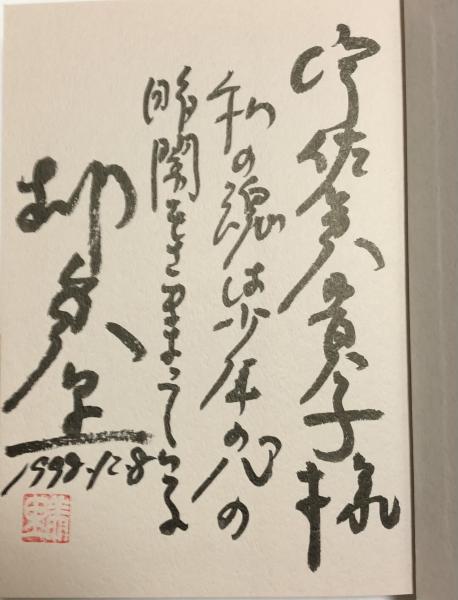 宇佐美貴子様
私の魂は少年の心の
暗闇をさまよっている
柳美里
1998.12.8